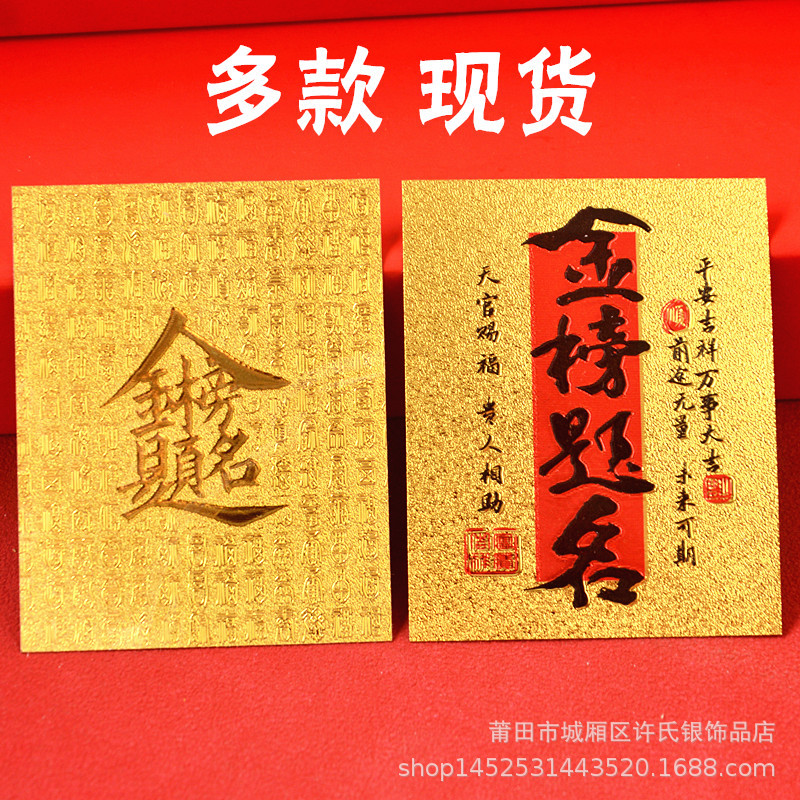 多款 现货
金榜题名
金榜题名
平安吉祥万事大吉
前途无量 未来可期
天官赐福 贵人相助
莆田市城厢区许氏银饰品店
shop1452531443520.1688.com